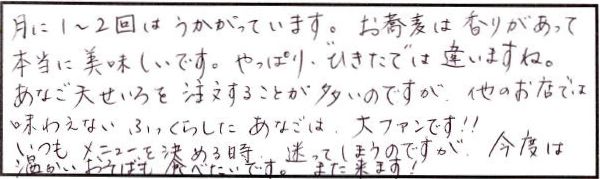 月に1〜2回はうかがっています。お蕎麦は香りがあって
本当に美味しいです。やっぱり、ひきたては違いますね。
あなご天せいろを注文することが多いのですが、他のお店では
味わえないふっくらしたあなごは、大ファンです!!
いつもメニューを決める時、迷ってしまうのですが、今度は
温かいおそばも食べたいです。また来ます!